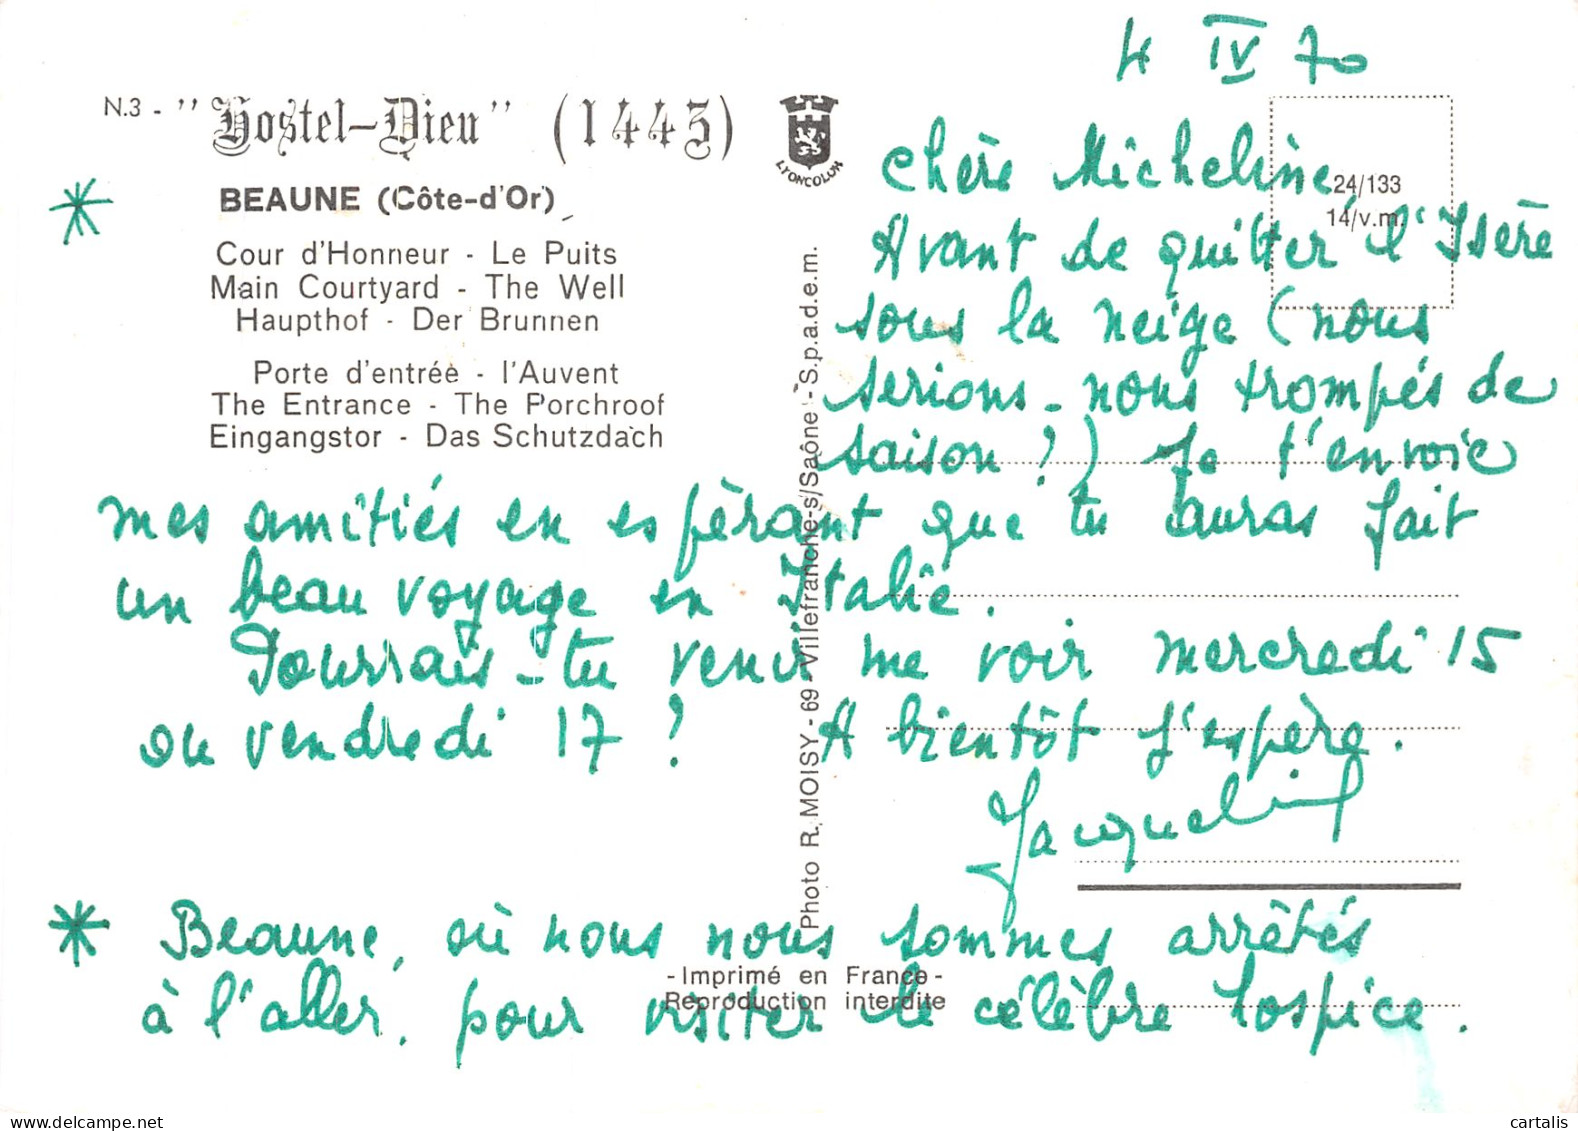 4 IV 70
N.3 - "Hostel-Dieu" (1443)
LYONCOLOR
BEAUNE (Côte-d'Or)
Cour d'Honneur - Le Puits
Main Courtyard - The Well
Haupthof - Der Brunnen
Porte d'entrée - l'Auvent
The Entrance - The Porchroof
Eingangstor - Das Schutzdach
24/133
14/v.m.
Photo R. MOISY - 69 - Villefranche-s/Saône - S.p.a.d.e.m.
Chère Micheline
Avant de quitter l'Isère
sous la neige (nous
serions-nous trompés de
saison ?) Je t'envoie
mes amitiés en espérant que tu auras fait
un beau voyage en Italie.
Pourrais-tu venir me voir mercredi 15
ou vendredi 17 ? A bientôt j'espère.
Jacqueline
* Beaune, où nous nous sommes arrêtés
à l'aller, pour visiter le célèbre hospice.
- Imprimé en France -
Reproduction interdite
*
www.delcampe.net
cartalis